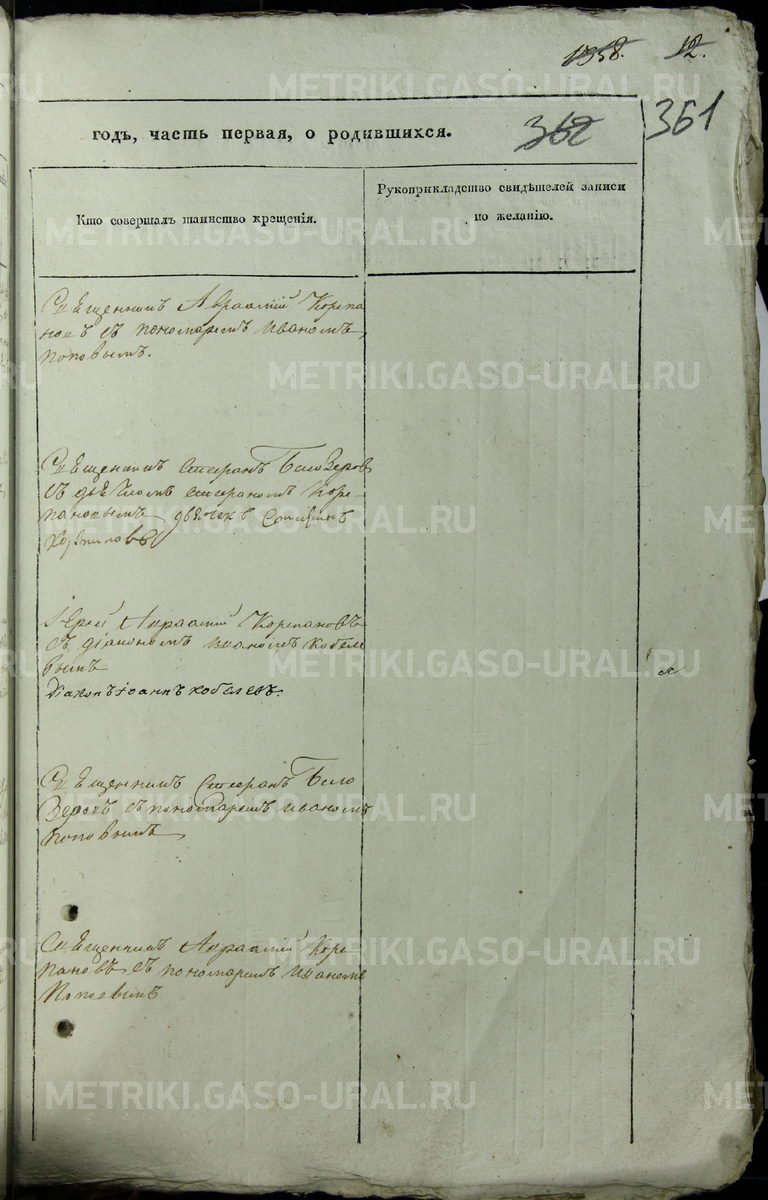 1358. 12.
годъ, часть первая, о родившихся. 362 361
Кто совершалъ таинство крещенія.
Рукоприкладство свидѣтелей записи
по желанію.
Священникъ Авраамій Корепа
новъ съ пономаремъ Иваномъ
Поповымъ.
Священникъ Стефанъ Белозеров
съ дьячкомъ Стефаномъ Коре-
пановымъ дьячекъ Стефанъ
Іерей Авраамій Корепановъ
съ діакономъ Иваномъ Кобеле
вымъ
Діаконъ Іоаннъ Кобелевъ.
Священникъ Стефанъ Бело
зеровъ съ пономаремъ Иваномъ
Поповымъ
Священникъ Авраамій Коре
пановъ съ пономаремъ Иваномъ
Поповымъ
METRIKI.GASO-URAL.RU